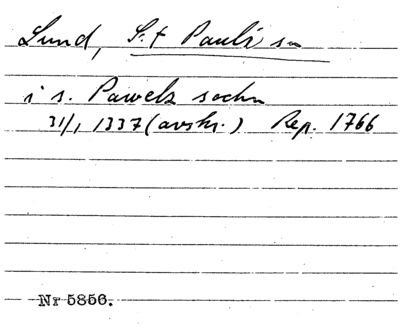 Lund, S:t Pauli sn
i s. Pawels sochn
31/1 1337 (avskr.) Rep. 1766
Nr 5856.